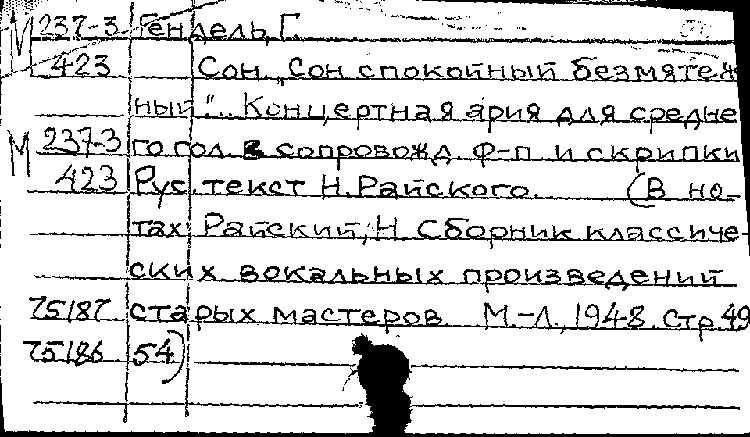 М 237-3 Гендель, Г.
423 Сон. "Сон спокойный безмятеж
ный"... Концертная ария для средне
М 237-3 го гол. в сопровожд. ф-п. и скрипки
423 Рус. текст Н. Райского. (В но-
тах: Райский, Н. Сборник классиче-
ских вокальных произведений
75187 старых мастеров. М.-Л., 1948. Стр. 49
75186 54)